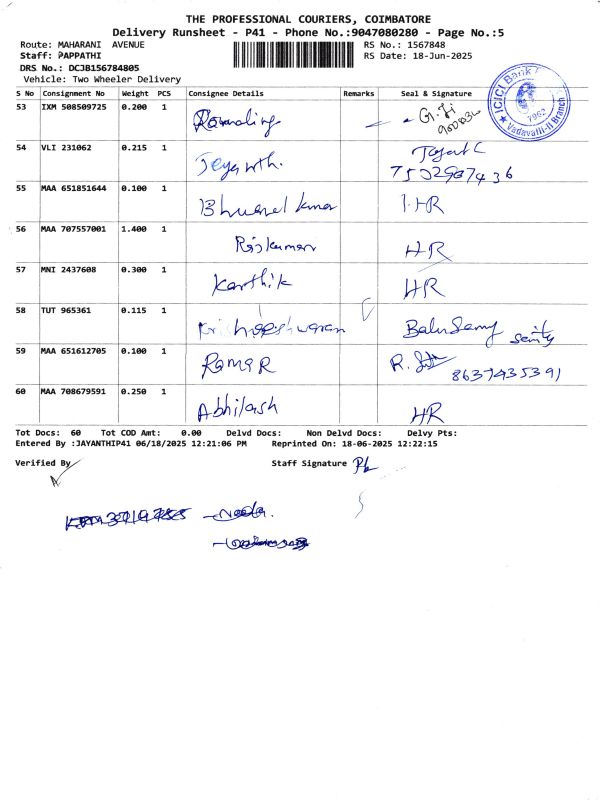 THE PROFESSIONAL COURIERS, COIMBATORE
Delivery Runsheet - P41 - Phone No.:9047080280 - Page No.:5
Route: MAHARANI AVENUE RS No.: 1567848
Staff: PAPPATHI RS Date: 18-Jun-2025
DRS No.: DCJB156784805
Vehicle: Two Wheeler Delivery
S No Consignment No Weight PCS Consignee Details Remarks Seal & Signature
53 IXM 508509725 0.200 1
ICICI Bank
Vadavalli-II Branch
54 VLI 231062 0.215 1 Jeyanth.
7502907436
55 MAA 651851644 0.100 1 HR
56 MAA 707557001 1.400 1 Rajkumar HR
57 MNI 2437608 0.300 1 Karthik HR
58 TUT 965361 0.115 1 Krishneshwaran Balusamy
59 MAA 651612705 0.100 1 Rama R R.
8637435391
60 MAA 708679591 0.250 1 Abhilash HR
Tot Docs: 60 Tot COD Amt: 0.00 Delvd Docs: Non Delvd Docs: Delvy Pts:
Entered By :JAYANTHIP41 06/18/2025 12:21:06 PM Reprinted On: 18-06-2025 12:22:15
Verified By Staff Signature